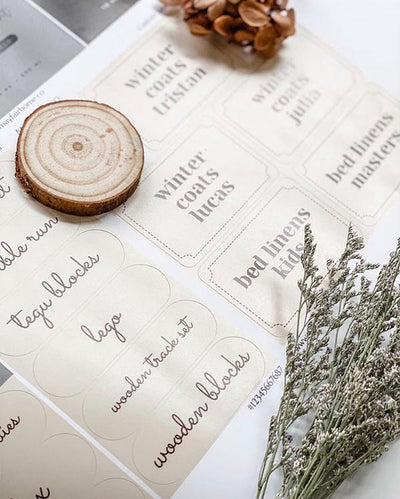 winter
coats
tristan
winter
coats
julia
winter
coats
lucas
bed linens
masters
bed linens
kids
tegu blocks
lego
wooden track set
wooden blocks
#12345667687